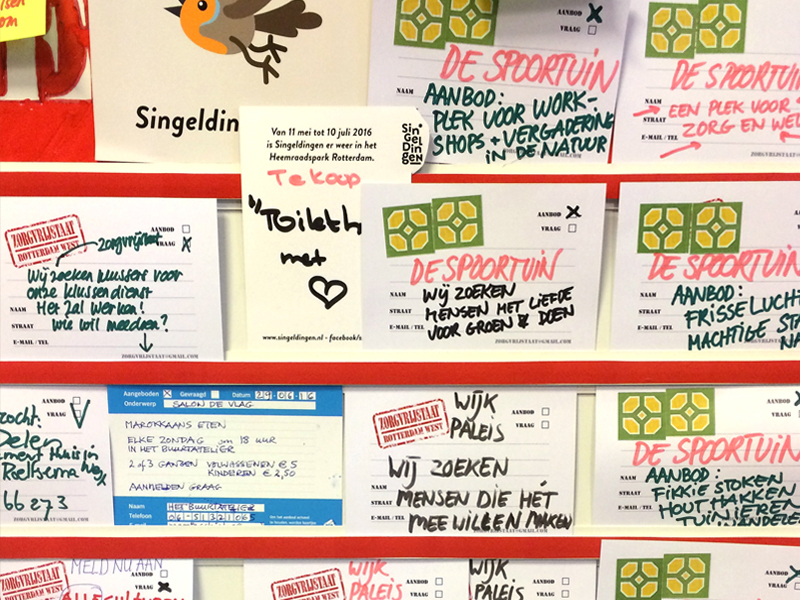 Singeldin
AANBOD
DE SPOORTUIN
NAAM
AANBOD:
PLEK VOOR WORK-
STRAAT
SHOPS + VERGADERING
E-MAIL / TEL
IN DE NATUUR
DE SPOORTUIN
NAAM
EEN PLEK VOOR
STRAAT
ZORG EN WEL
E-MAIL / TEL
ZORGVRIJSTAAT@
Van 11 mei tot 10 juli 2016
is Singeldingen er weer in het
Heemraadspark Rotterdam.
SinGelDingen
Te koop
"Toilet
met
www.singeldingen.nl - facebook/s
ZORGVRIJSTAAT
ROTTERDAM WEST
AANBOD
VRAAG
zorgvrijstaat
Wij zoeken klussers voor
onze klussendienst
Het zal werken!
wie wil meedoen?
NAAM
STRAAT
E-MAIL / TEL
ZORGVRIJSTAAT@GMAIL.COM
AANBOD
VRAAG
DE SPOORTUIN
NAAM
WIJ ZOEKEN
STRAAT
MENSEN MET LIEFDE
E-MAIL / TEL
VOOR GROEN & DOEN
ZORGVRIJSTAAT@GMAIL.COM
DE SPOORTUIN
NAAM
AANBOD:
STRAAT
FRISSE LUCHT
E-MAIL / TEL
MACHTIGE
ZORGVRIJSTAAT@GMAIL.COM
AANBOD
VRAAG
zocht:
66273
ZORGVRIJSTAAT@GMAIL.COM
Aangeboden
Gevraagd
Datum 24-06-16
Onderwerp SALON DE VLAG
MAROKKAANS ETEN
ELKE ZONDAG om 18 UUR
IN HET BUURTATELIER
2 of 3 GANGEN VOLWASSENEN € 5
KINDEREN € 2,50
AANMELDEN GRAAG
Naam HET BUURTATELIER
Telefoon
ZORGVRIJSTAAT
ROTTERDAM WEST
WIJK
PALEIS
AANBOD
VRAAG
WIJ ZOEKEN
NAAM
MENSEN DIE HET
STRAAT
E-MAIL / TEL
MEE WILLEN MAKEN
AANBOD
VRAAG
DE SPOORTUIN
NAAM
AANBOD:
STRAAT
FIKKIE STOKEN
E-MAIL / TEL
HOUT HAKKEN
TUINIEREN
MELD NU AAN
ZORGVRIJSTAAT
ROTTERDAM WEST
AANBOD
VRAAG
ZORGVRIJSTAAT
ROTTERDAM WEST
WIJK
PALEIS
AANBOD
VRAAG
WIJK
PALEIS
AANBOD
VRAAG
AANBOD
VRAAG